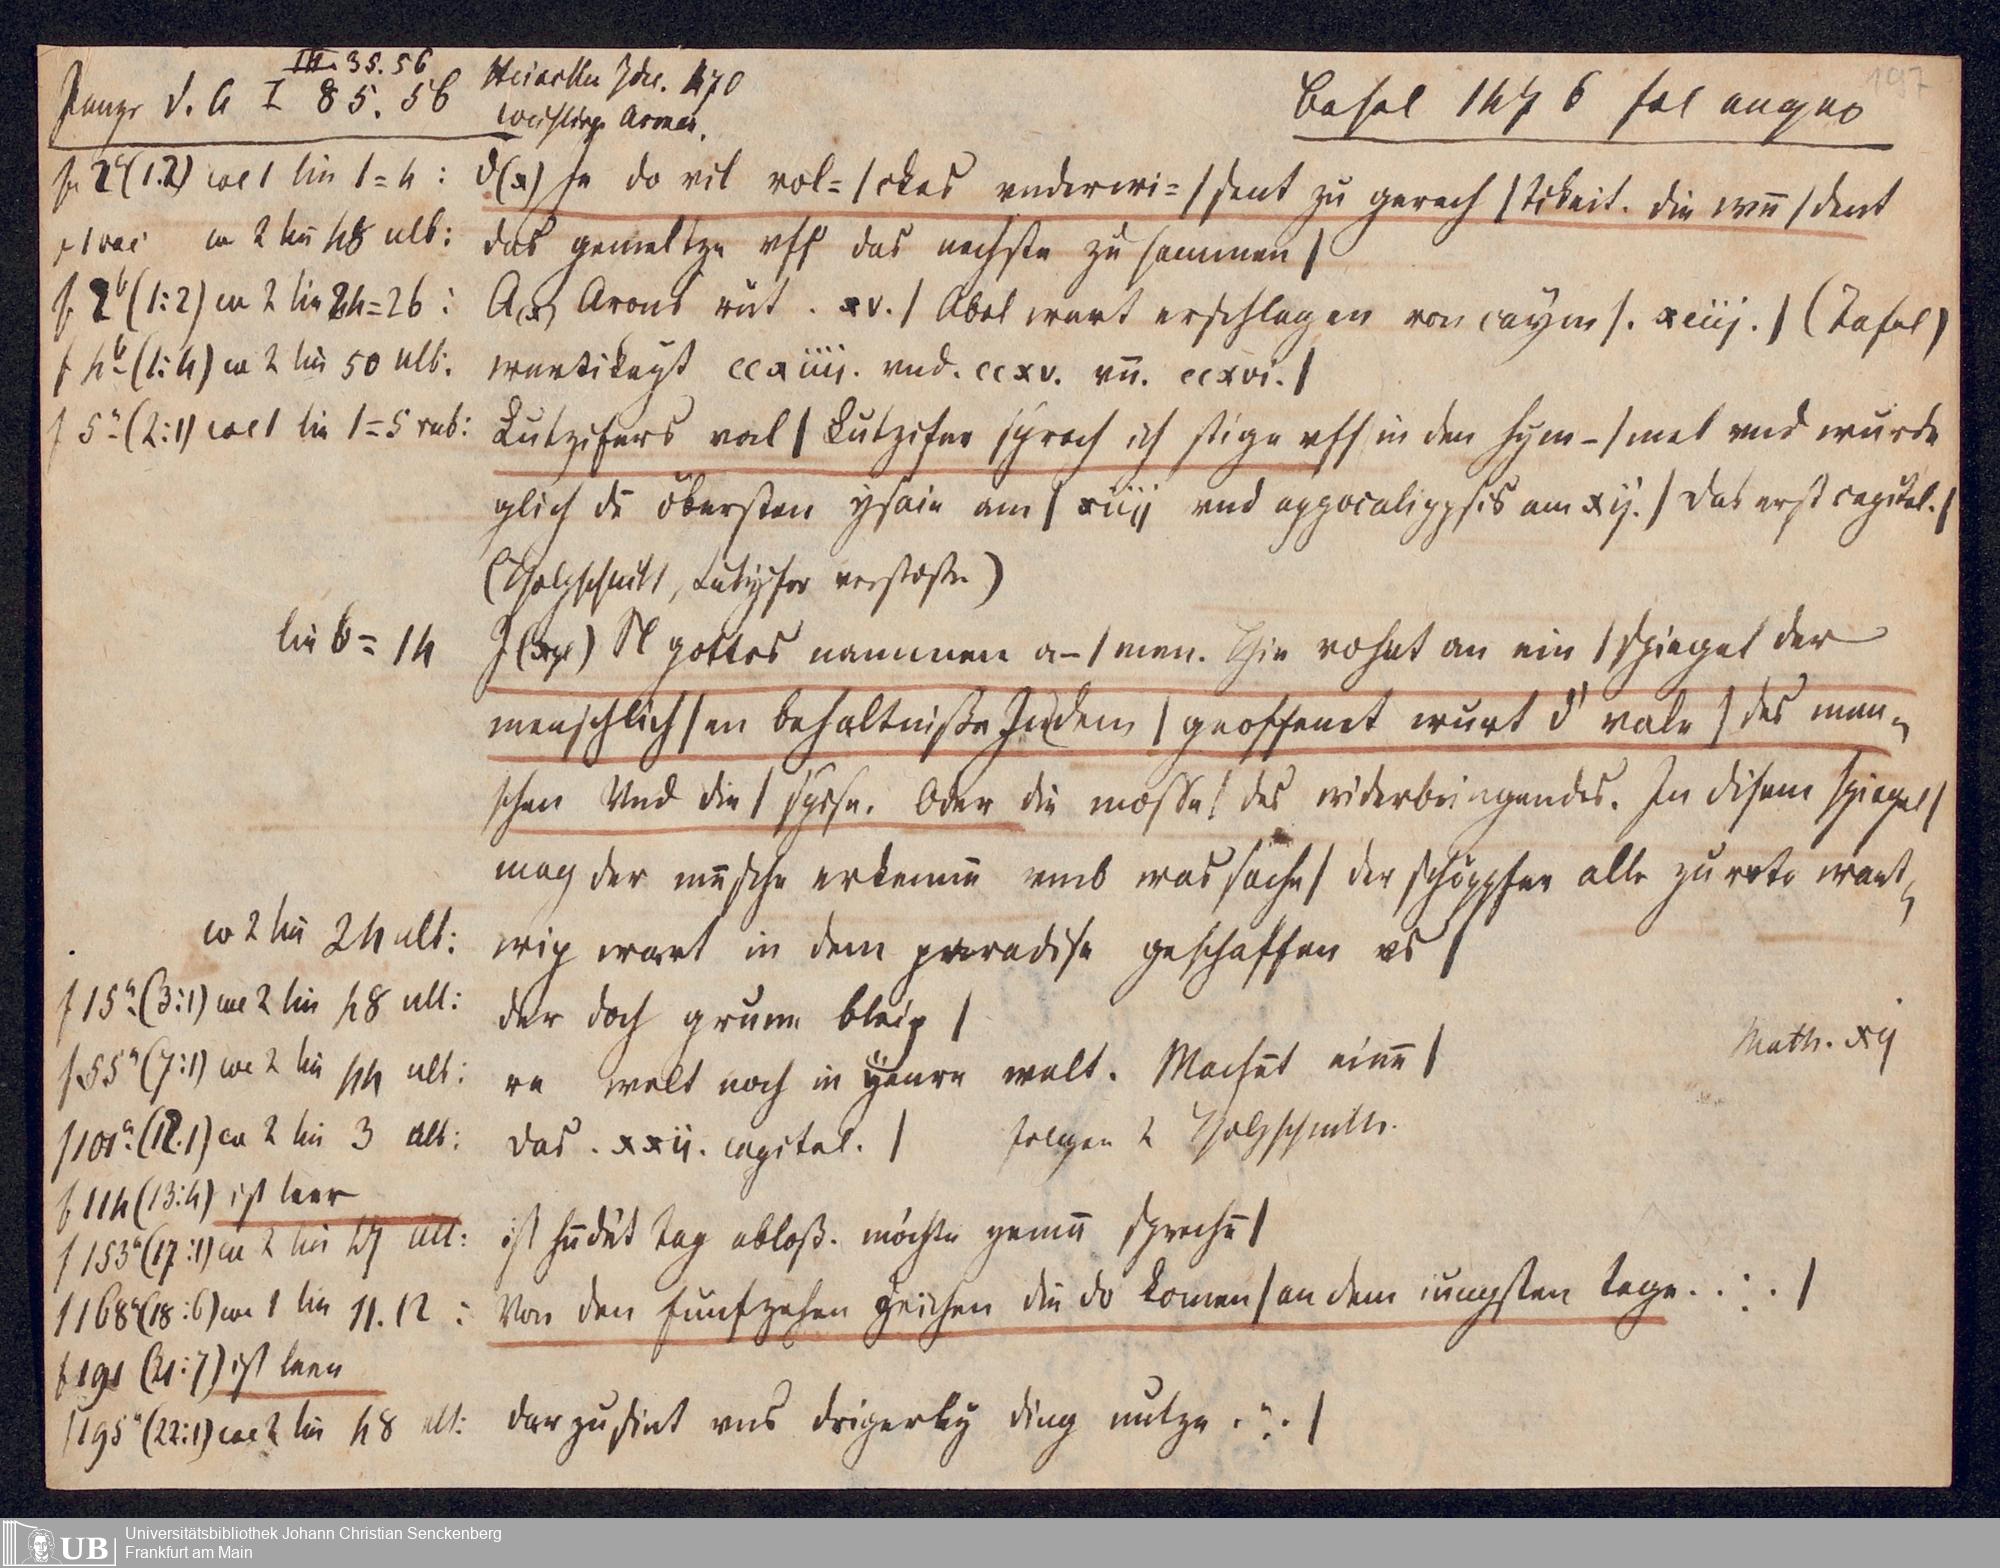 III. 35. 56
Panzer d. A I 85. 56
470
Basel 1476 fol
197
f 2a (1.2) col 1 lin 1=4 : D(x) Je do vil vol= / ckes vnderwi= / sent zu gerech / tikeit. die wn̄ / dent
co 2 lin 48 ult: das gemeltze vff das nechste zu sammen /
f 2b (1:2) co 2 lin 24=26 : A(x) Arons růt . xv. / Abel wart erschlagen von caym /. xciij. / (Tafel)
f 4b (1:4) co 2 lin 50 ult: wertikeyt ccxiiij. vnd. ccxv. vn̄. ccxvi. /
f 5a (2:1) col 1 lin 1=5 rub: Lutzifers val / Lutzifer sprach ich stige vff / in den hym- / mel vnd wurde
glich dē öbersten ysaie am / xiiij vnd appocalippsis am xij. / Das erst capitel. /
(Holzschnitt, Lutzifer verstosse)
lin 6=14 J(xyl) N gottes nammen a- / men. Hie vohet an ein / spiegel der
menschlich / en behaltnisse Jn dem / geoffent wurt d' vale / des men-
schen Vnd die / wise. Oder die mosse / des widerbringendes. In disem spiegel /
mag der mēsche erkennē vmb was sache / der schöppfer alle
co 2 lin 24 ult: wip wart in dem paradise geschaffen vs /
f 15a (3:1) col 2 lin 48 ult: der doch grune bleip /
Math. xij
f 55a (7:1) col 2 lin 44 ult: re welt noch in yenre welt. Machēt einē /
f 101a (12.1) co 2 lin 3 ult: Das . xxij. capitel. / folgen 2 Holzschnitte.
f 114 (13:4) ist leer
f 153a (17:1) co 2 lin 47 ult: ist hūdēt tag abloß. möchte yemā sprechē /
f 168a (18:6) col 1 lin 11. 12 : Von den funfzehen zeichen die do komen / an dem iungsten tage. . : . /
f 191 (21:7) ist leer
f 195a (22:1) col 2 lin 48 ult: dar zu sint vns drigerley ding nutze . : . /
UB
Universitätsbibliothek Johann Christian Senckenberg
Frankfurt am Main